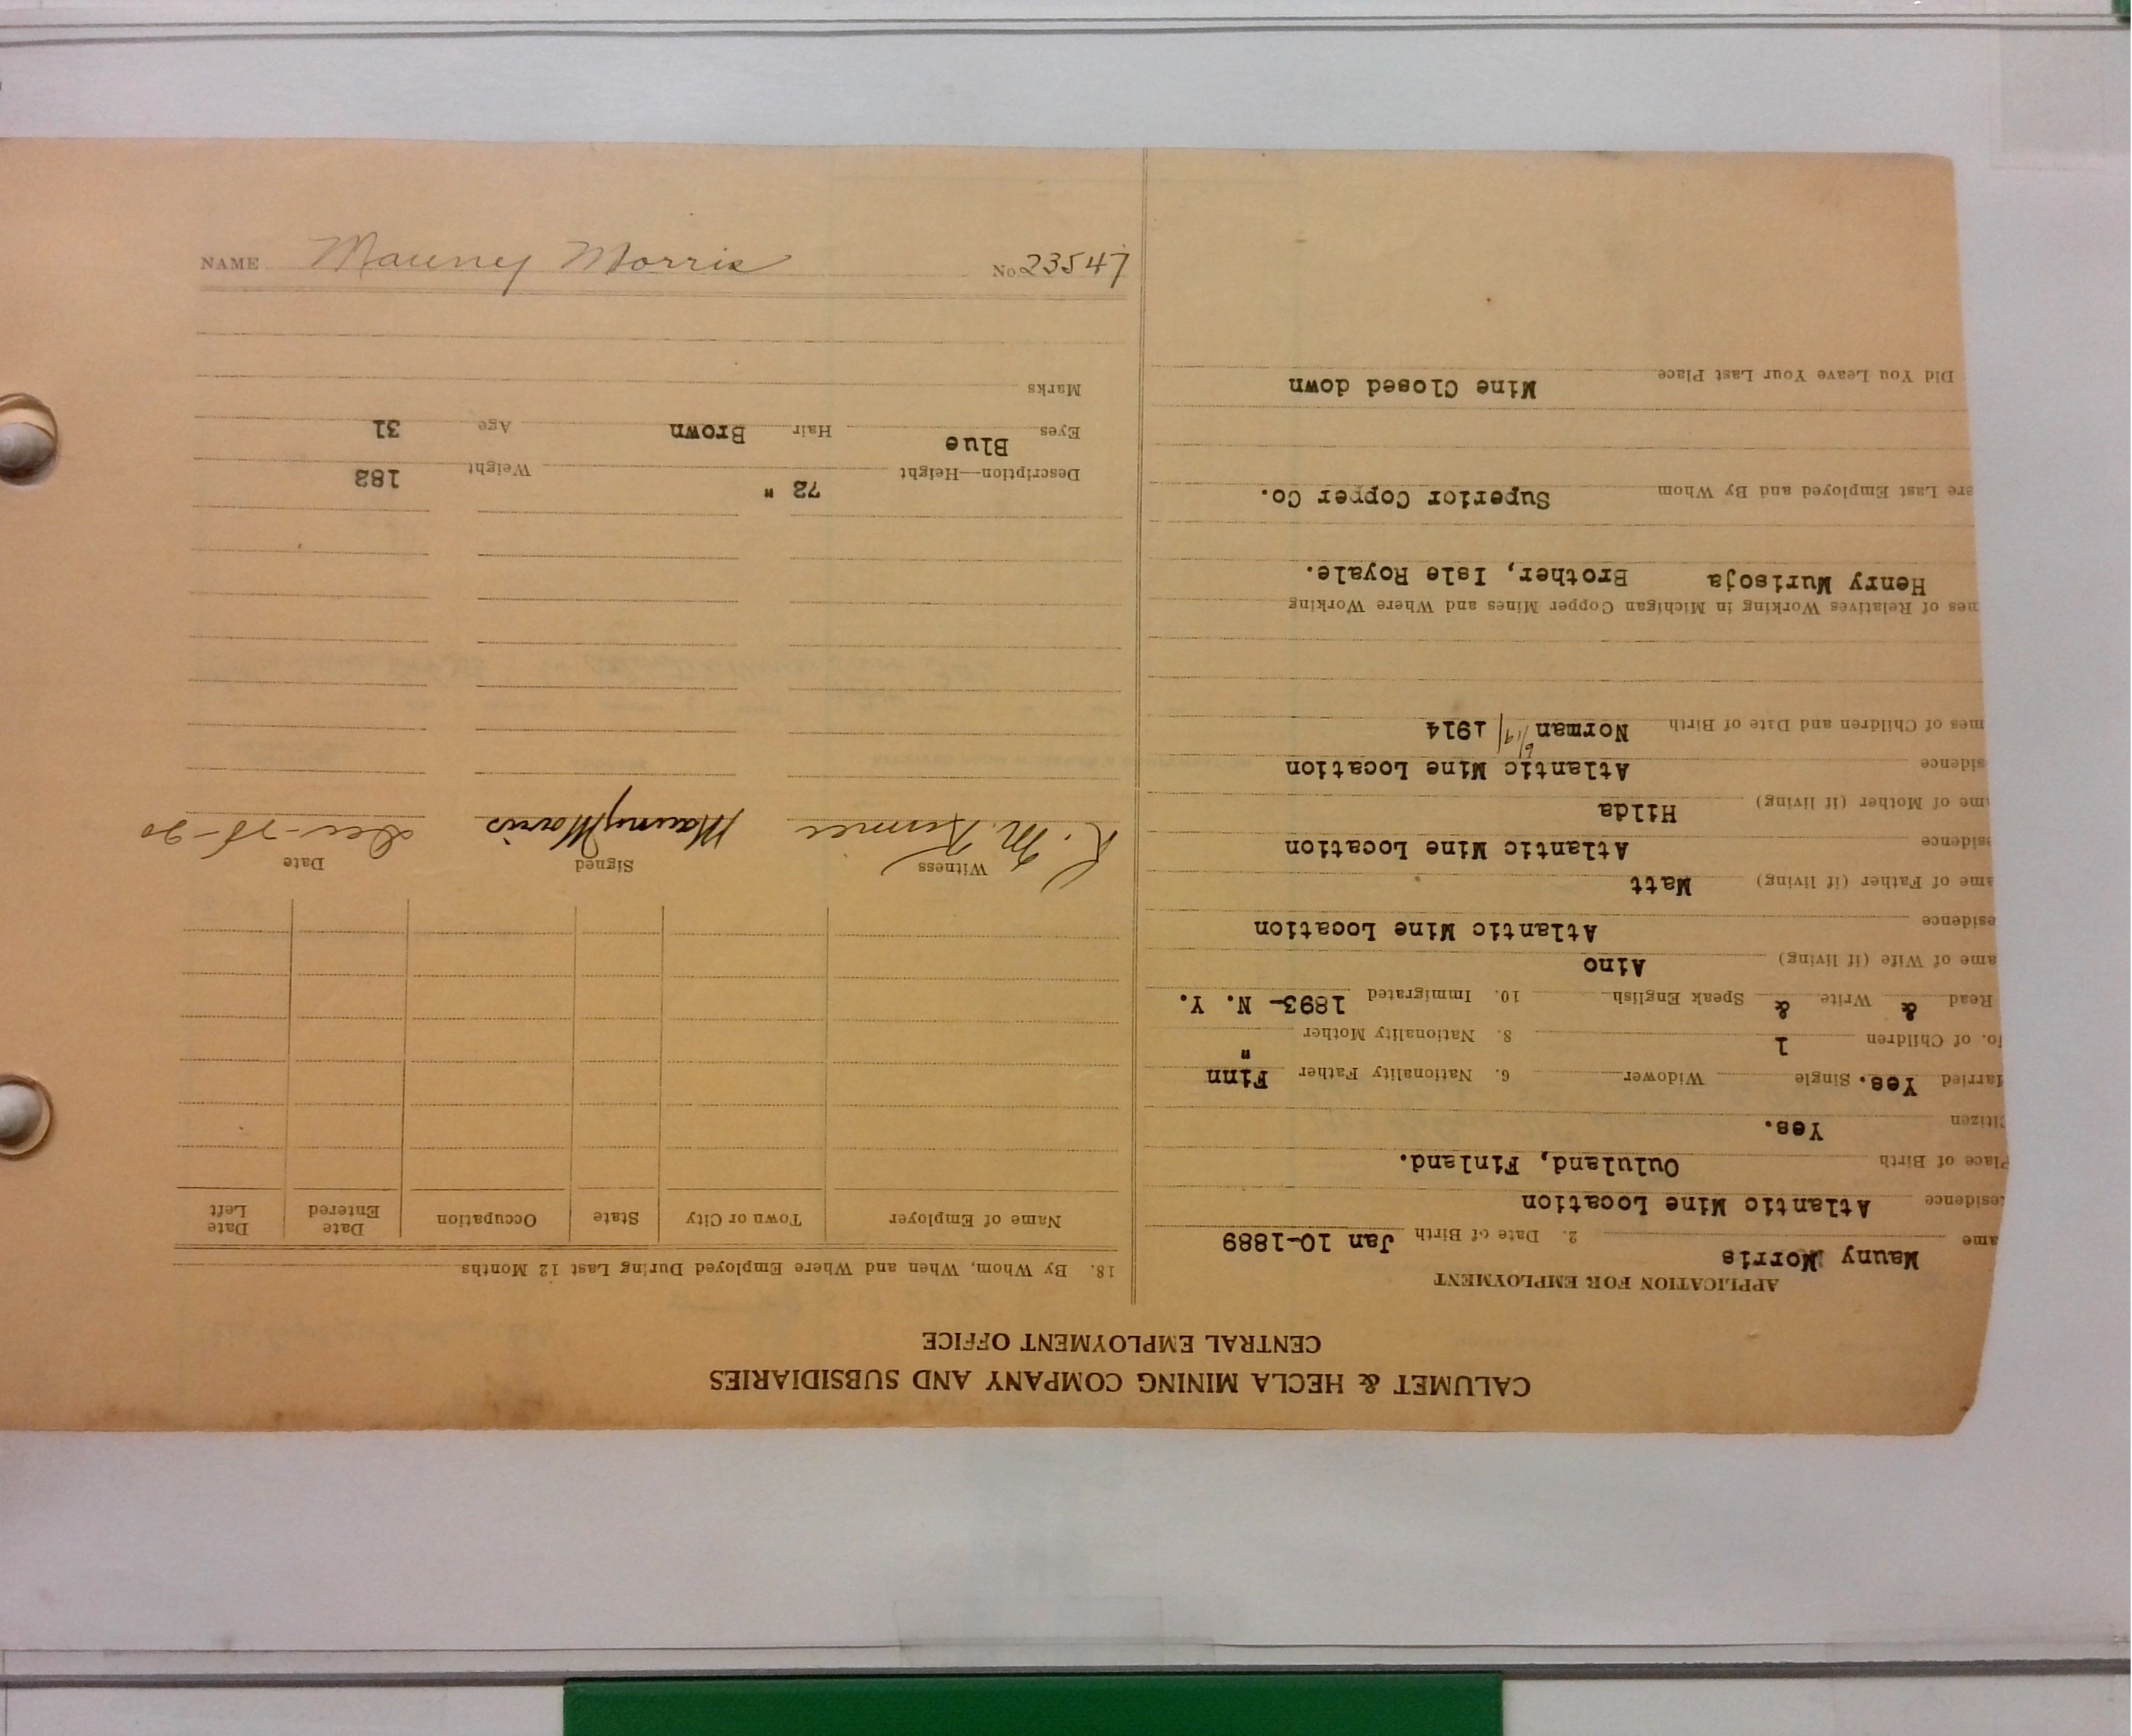 CALUMET & HECLA MINING COMPANY AND SUBSIDIARIES
CENTRAL EMPLOYMENT OFFICE
APPLICATION FOR EMPLOYMENT
ame Mauny Morris 2. Date of Birth Jan 10-1889
esidence Atlantic Mine Location
Place of Birth Oululand, Finland.
itizen Yes.
Married Yes. Single Widower 6. Nationality Father Finn
No. of Children 1 8. Nationality Mother "
Read & Write & Speak English 10. Immigrated 1893- N. Y.
ame of Wife (if living) Aino
esidence Atlantic Mine Location
ame of Father (if living) Matt
esidence Atlantic Mine Location
me of Mother (if living) Hilda
sidence Atlantic Mine Location
mes of Children and Date of Birth Norman 6/17/ 1914
nes of Relatives Working in Michigan Copper Mines and Where Working
Henry Murisoja Brother, Isle Royale.
ere Last Employed and By Whom Superior Copper Co.
Did You Leave Your Last Place Mine Closed down
18. By Whom, When and Where Employed During Last 12 Months
Name of Employer Town or City State Occupation Date Entered Date Left
Witness Signed Date
K. M. Mauny Morris Dec-
Description—Height 72 " Weight 182
Eyes Blue Hair Brown Age 31
Marks
NAME Mauney Morris No. 23547